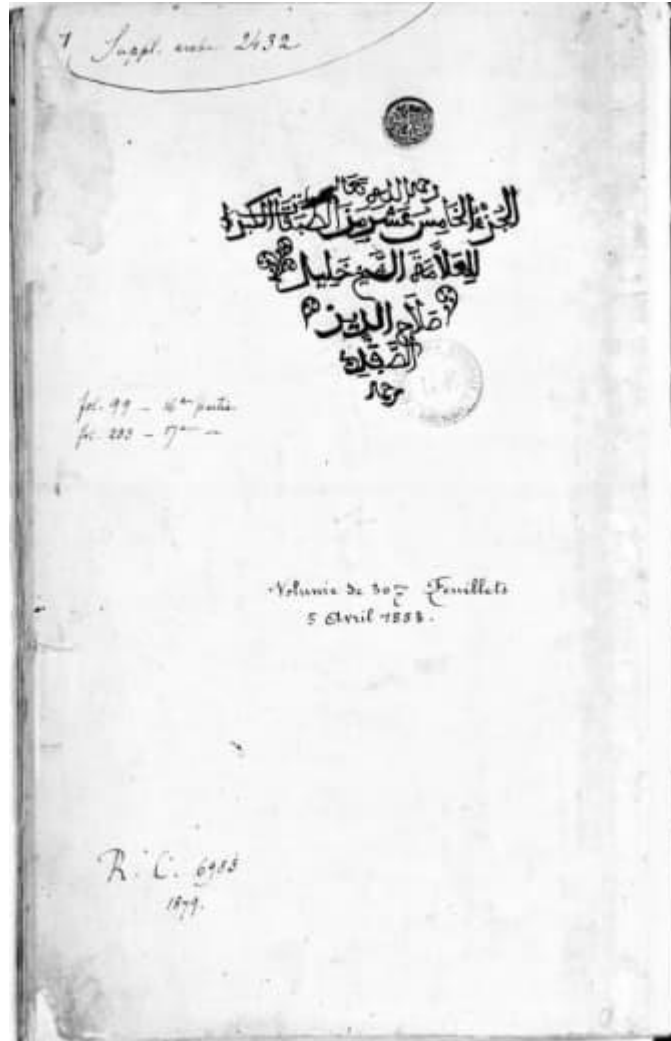 Suppl. arabe 2432
رحمه الله تعالى
الجزء الخامس عشر من الطبقات الكبرى
للعلامة الشيخ خليل
صلاح الدين
الصفدي
رحمه
fol. 99 — 16me partie
fol. 203 — 17me —
Volume de Feuillets
5 Avril 1883.
R. C. 6983
1879.